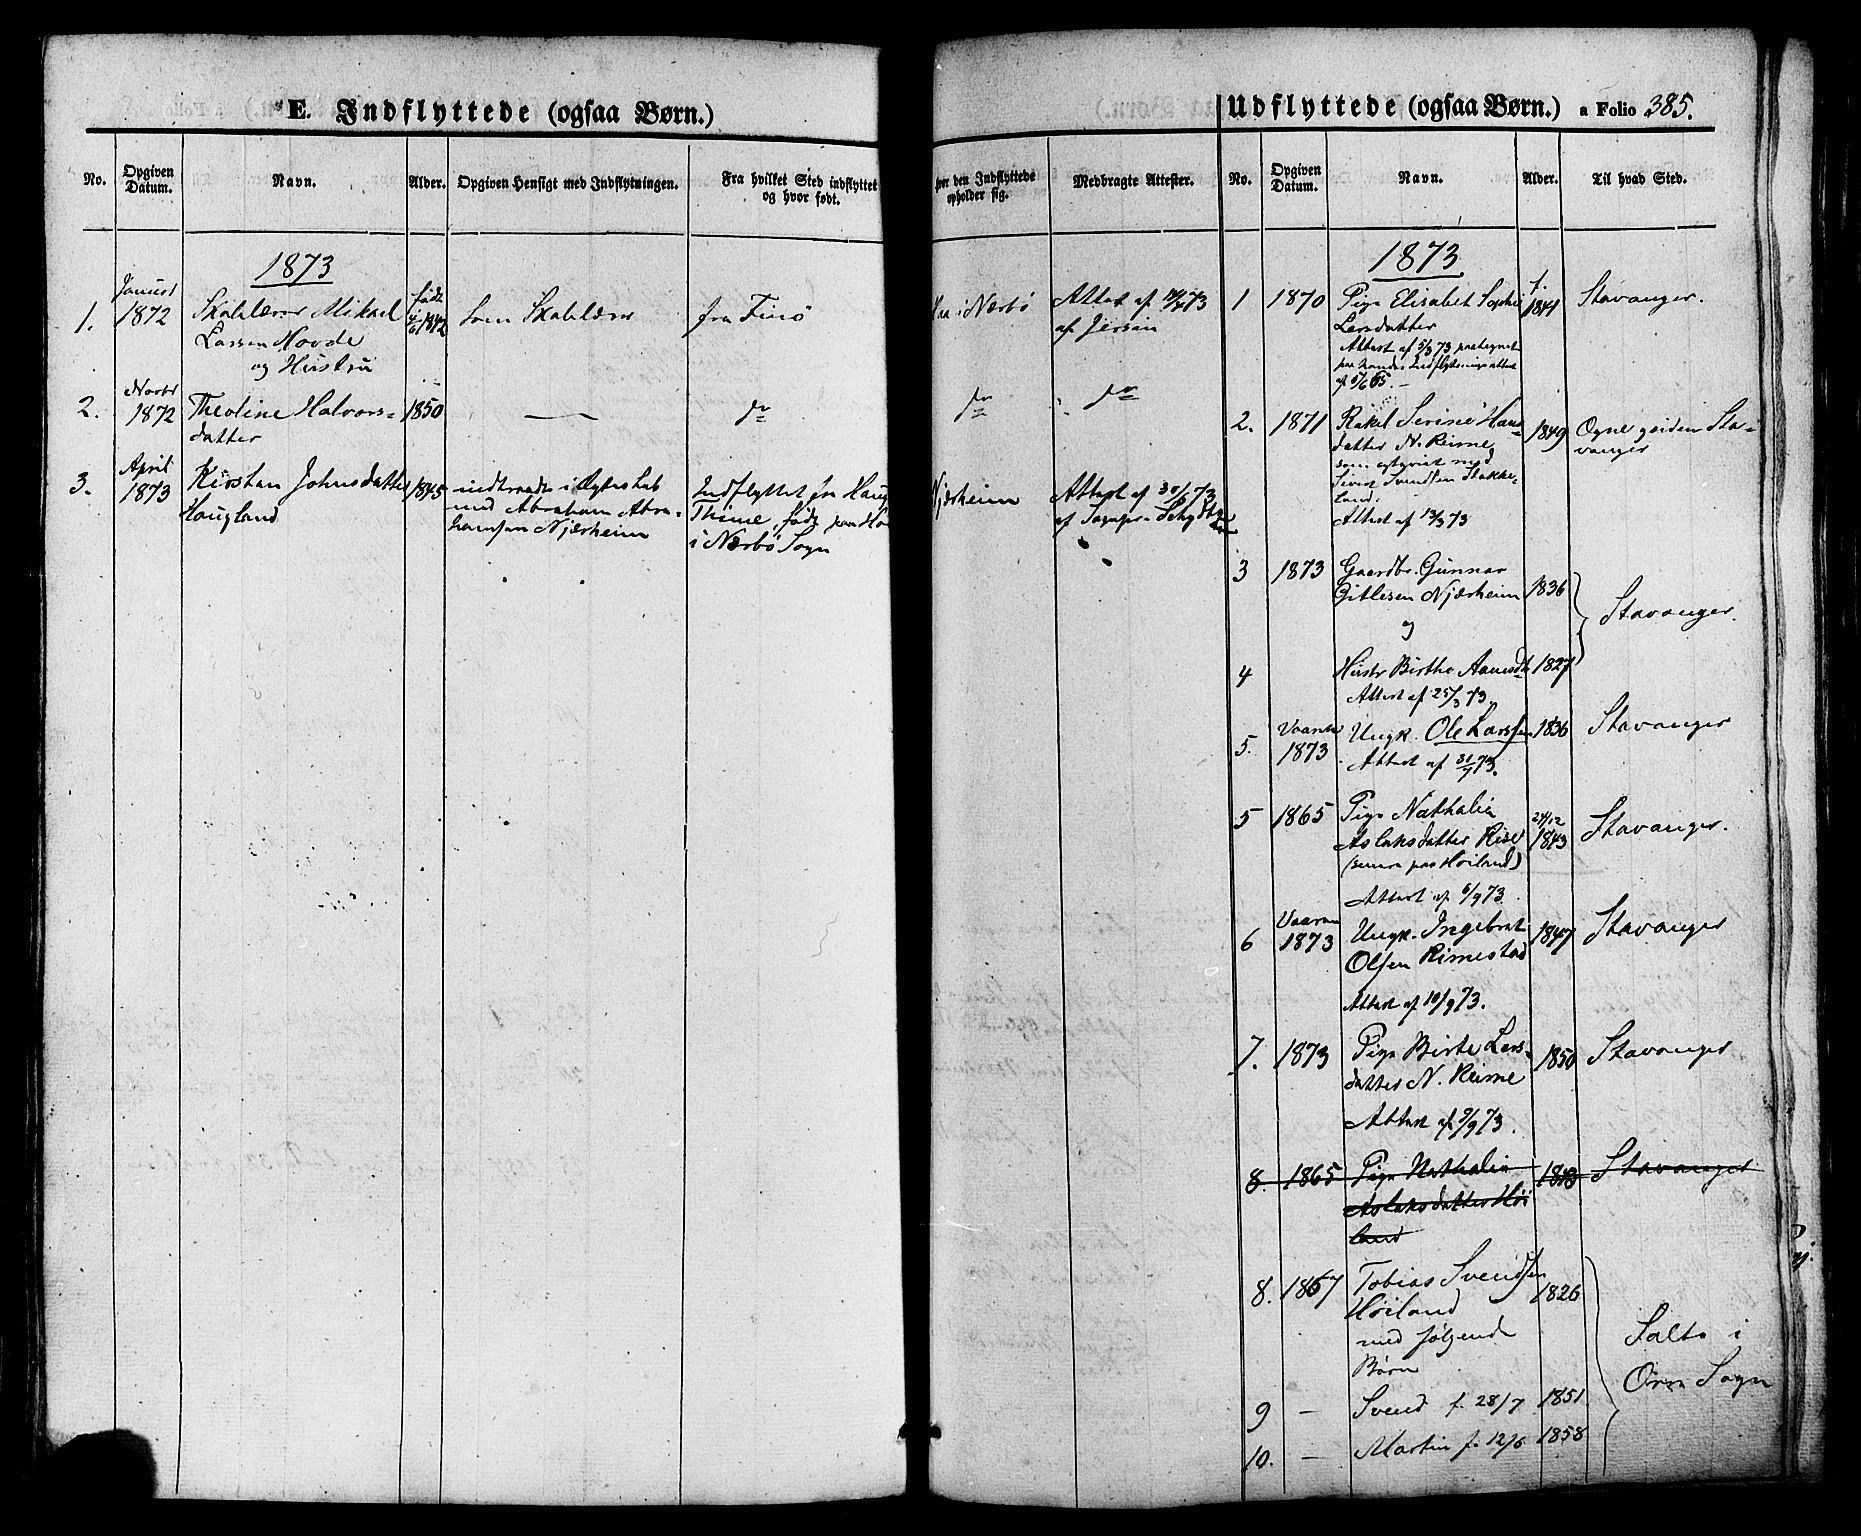 E. Indflyttede (ogsaa Børn.)
No.
Opgiven Datum.
Navn.
Alder.
Opgiven Hensigt med Indflytningen.
Fra hvilket Sted indflyttet
og hvor født.
hvor den Indflyttede
opholder sig.
Medbragte Attester.
1873
1.
Januar
1872
Skolelærer Mikael
Lassen Hovde
og Hustru
født
1842
som Skolelærer
fra Finö
Haa i Nærbö
Attest af
73
af Jersin
2.
Novbr
1872
Theoline Halvors-
datter
1850
—
do
do
" do
3.
April
1873
Kirsten Johnsdatter
Haugland
1845
indtraadt i Ægteskab
med Abraham Abra-
hamsen Njærheim
Indflyttet fra Haug
Thime, født paa
i Nærbö Sogn
Njærheim
Attest af 30/6 73
af Sognepr.
Udflyttede (ogsaa Børn.) a Folio 385.
No.
Opgiven Datum.
Navn.
Alder.
Til hvad Sted.
1873
1
1870
Pige Elisabet Sophie
Larsdatter
Attest af 5/3 73 paategnet
paa hendes Indflytningsattest
af 65. –
f.
1841
Stavanger.
2.
1871
Rakel Serine Hans
datter N. Reime
som
med
Sivert Svendsen Stokke-
land.
Attest af 13/3 73
1849
Ogne siden Sta-
vanger
3
1873
Gaardbr. Gunnar
Gitlesen Njærheim
og
1836
Stavanger.
4
Hustr Birthe Aanesdt
Attest af 25/3 73.
1827
5.
Vaaren
1873
Ungk. Ole Larssen
Attest af 31/7 73.
1836
Stavanger
5
1865
Pige Nathalia
Aslaksdatter Risa
(senere paa Höiland)
Attest af 6/9 73.
24/12
1843
Stavanger.
6
Vaaren
1873
Ungk. Ingebret
Olsen Rimestad
Attest af 10/9 73.
1847
Stavanger
7.
1873
Pige Birte Lars-
datter N. Reime
Attest af 9/9 73.
1850
Stavanger
8. 1865 Pige Nathalia 1843 Stavanger
Aslaksdatter Höi
land
8.
1867
Tobias Svendsen
Höiland
med følgende
Børn
1826
Salte i
Orre Sogn
9 — Svend f. 28/7 1851.
10. — Martin f. 12/6 1858